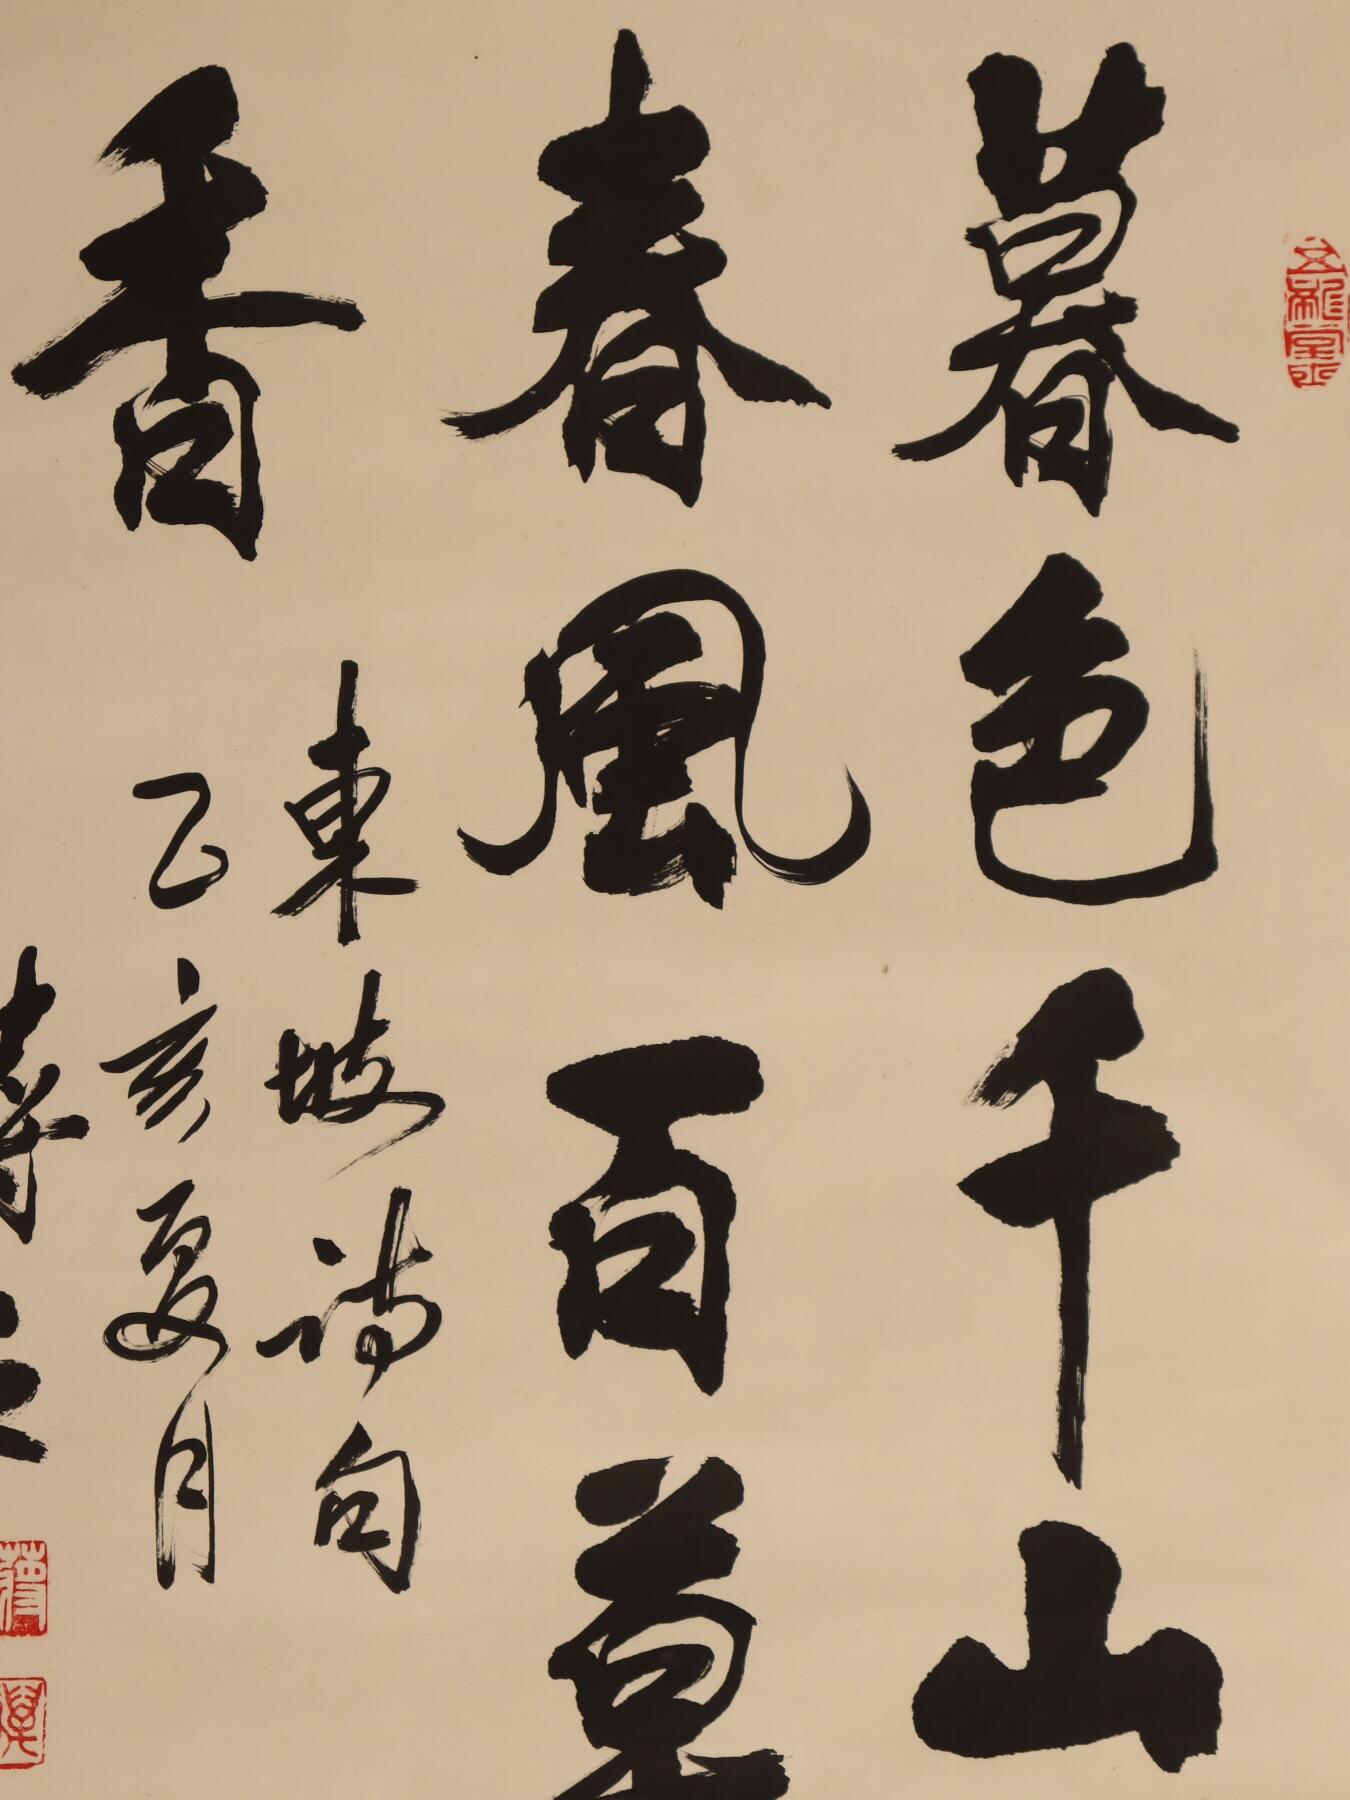 暮色千山
春風百草
香
東坡詩句
乙亥夏月